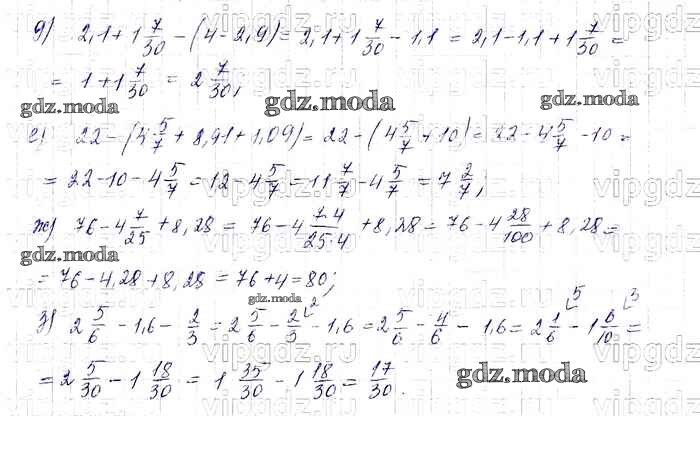 д) 2,1 + 1 7/30 − (4 − 2,9) = 2,1 + 1 7/30 − 1,1 = 2,1 − 1,1 + 1 7/30 =
= 1 + 1 7/30 = 2 7/30;
gdz.moda gdz.moda gdz.moda
е) 22 − (4 5/7 + 8,91 + 1,09) = 22 − (4 5/7 + 10) = 22 − 4 5/7 − 10 =
= 22 − 10 − 4 5/7 = 12 − 4 5/7 = 11 7/7 − 4 5/7 = 7 2/7;
ж) 76 − 4 7/25 + 8,28 = 76 − 4 7·4/25·4 + 8,28 = 76 − 4 28/100 + 8,28 =
gdz.moda
= 76 − 4,28 + 8,28 = 76 + 4 = 80;
gdz.moda
з) 2 5/6 − 1,6 − 2/3 = 2 5/6 − 2/3 (2 − 1,6 = 2 5/6 − 4/6 − 1,6 = 2 1/6 (5 − 1 6/10 (3 =
= 2 5/30 − 1 18/30 = 1 35/30 − 1 18/30 = 17/30.
gdz.moda
vipgdz.ru